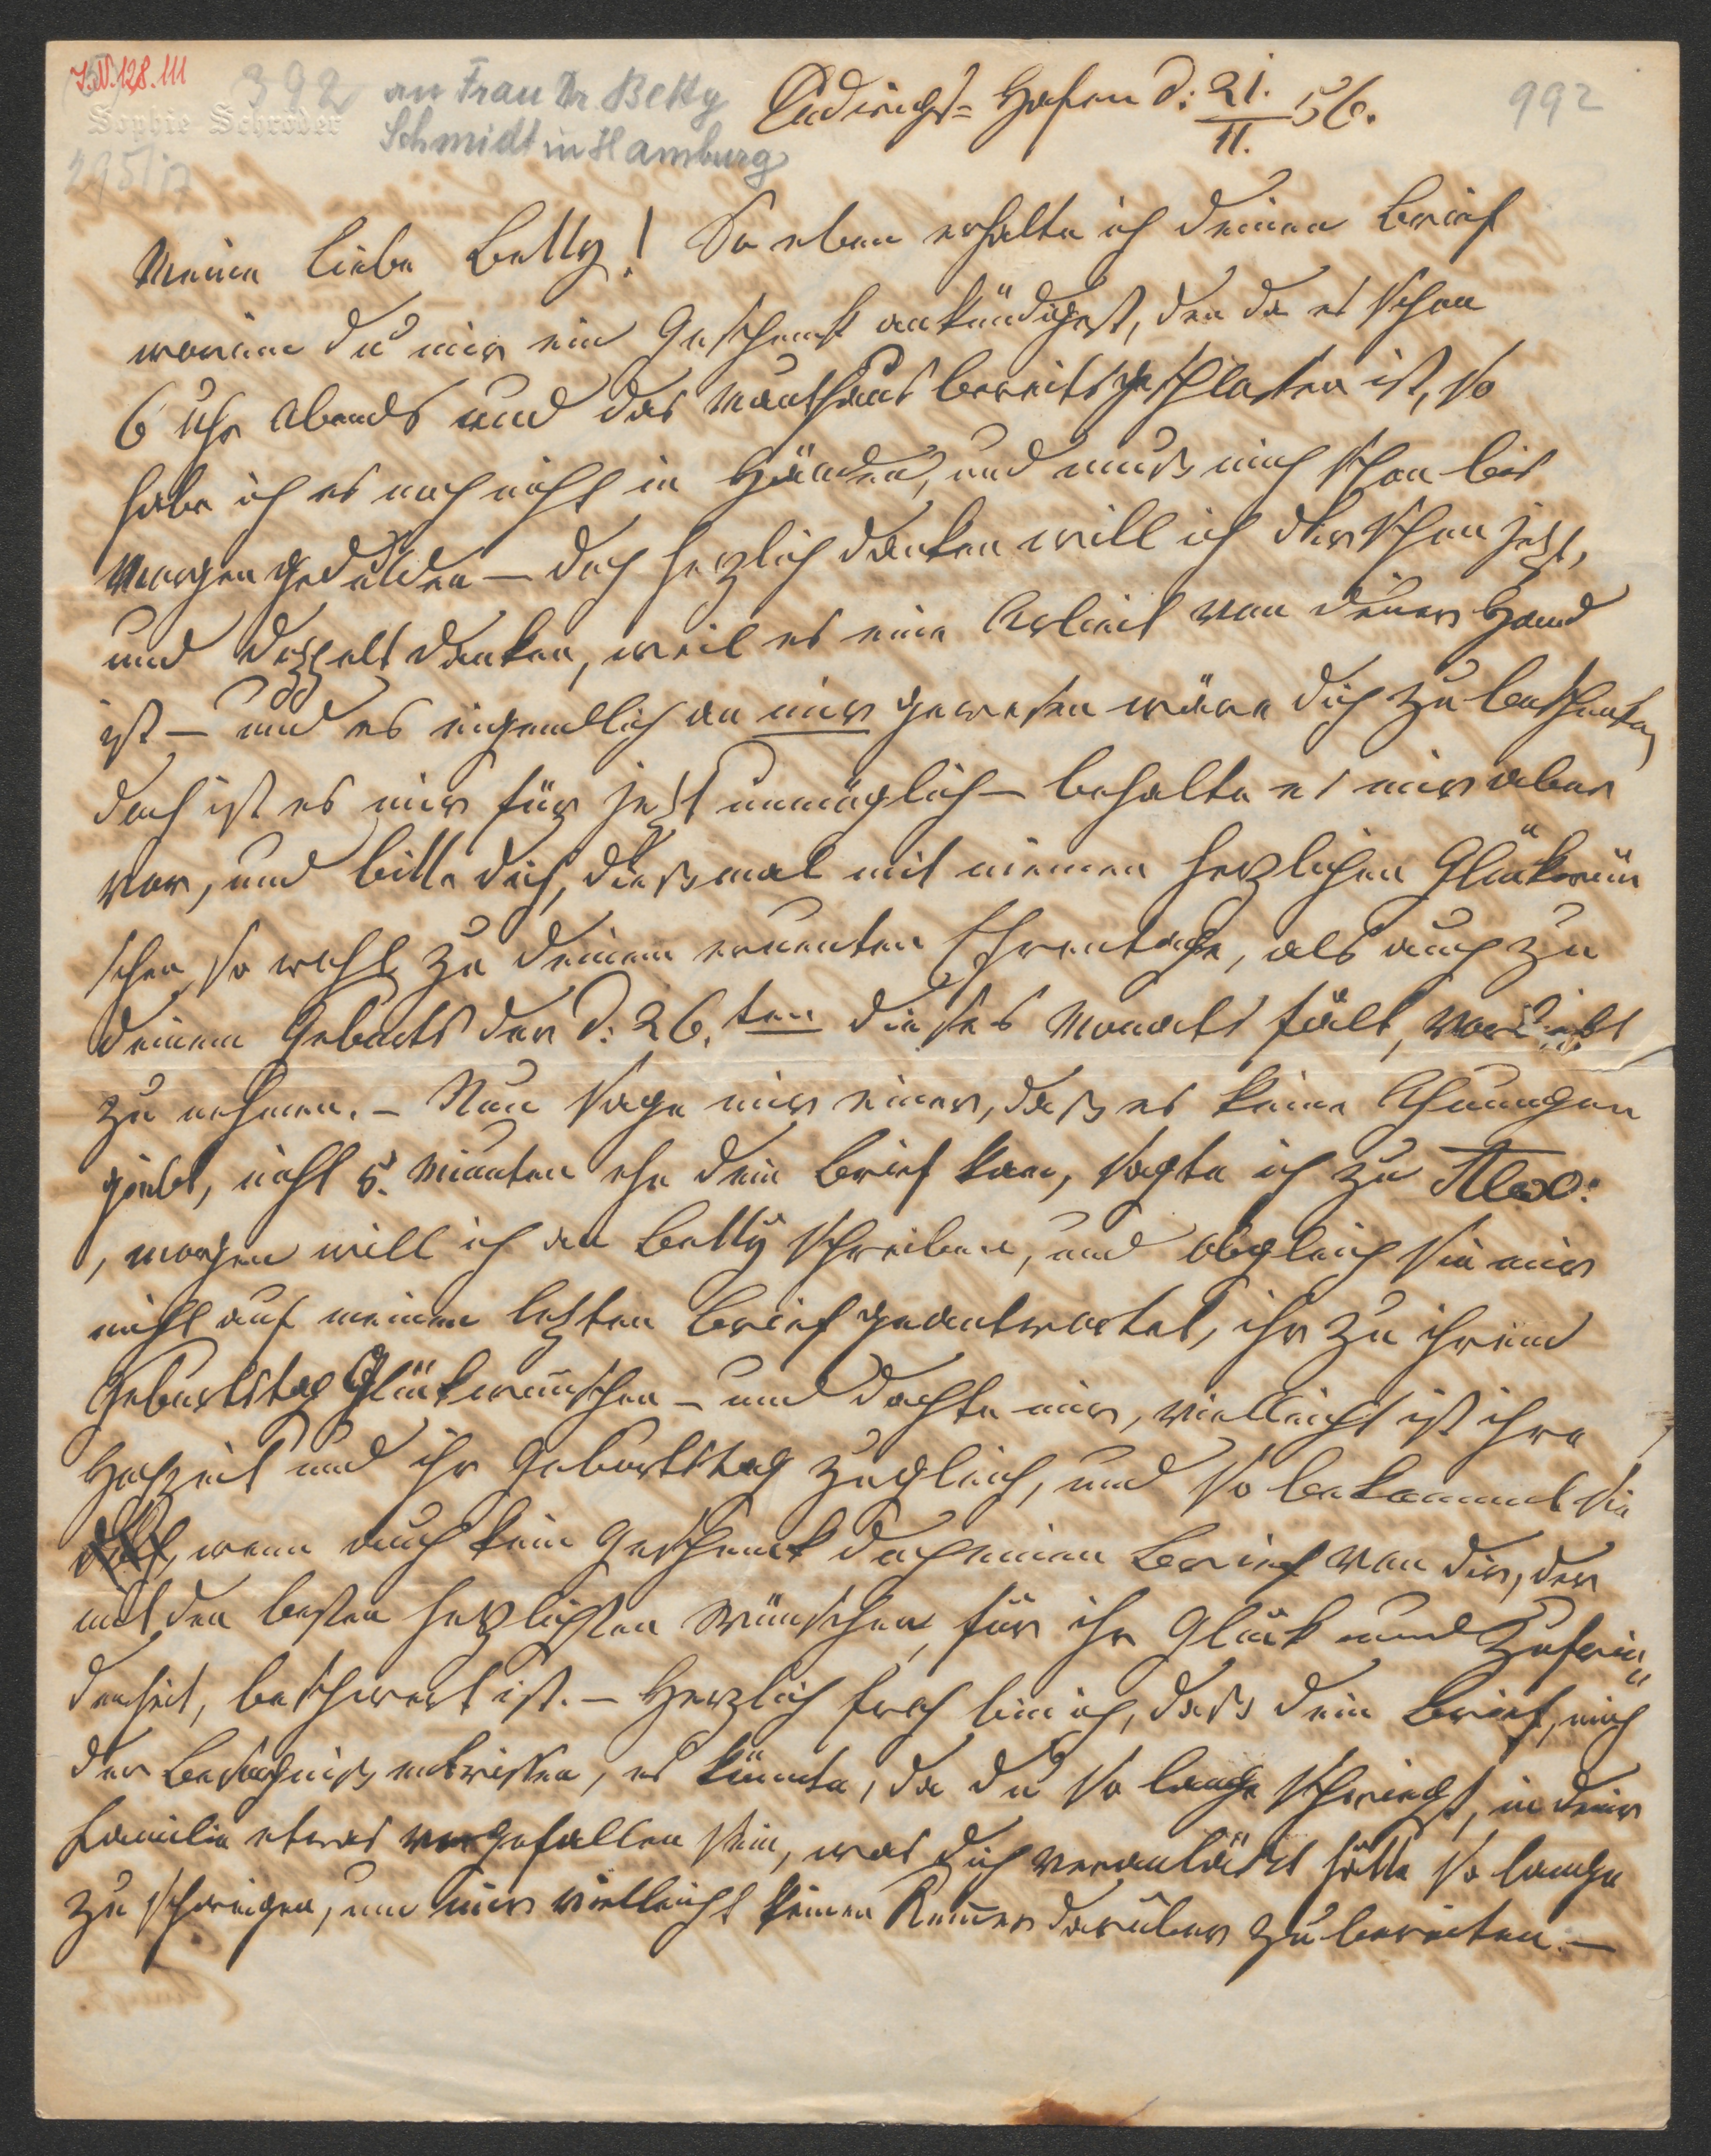 I.N. 128.111
392 an Frau Dr Betty
Schmidt in Hamburg
Sophie Schröder
295/17
992
Ludwigs-Hafen d: 21./11. 56.
Meine liebe Betty! So eben erhalte ich deinen Brief
worinn du mir ein Geschenk ankündigest, den da es schon
6 Uhr Abends und das Mauthhaus bereits geschlossen ist, so
habe ich es noch nicht in Händen, und muß mich schon bis
Morgen gedulden — doch herzlich danken will ich dir schon jezt,
und doppelt danken, weil es eine Arbeit von deiner Hand
ist — und es eigendlich an mir gewesen wäre dich zu beschenken,
doch ist es mir für jezt unmöglich — behalte es mir aber
vor, und bitte dich, dießmal mit meinen herzlichen Glükwün
schen, so wohl zu deinem ernenten Ehrentage, als auch zu
deinem Geburts der d: 26.ten dieses Monats fält, vorlieb
zu nehmen. — Nun sage mir einer, daß es keine Ahnungen
giebt, nicht 5. Minuten ehe dein Brief kam, sagte ich zu Alex:
, morgen will ich an Betty schreiben, und obgleich sie mir
nicht auf meinen lezten Brief geantwortet, ihr zu ihrem
Geburtstag Glükwünschen — und dachte mir, vielleicht ist ihre
Hochzeit und ihr Geburtstag zugleich, und so bekommt sie
doch, wenn auch kein Geschenk doch einen Brief von dir, der
mit den besten herzlichsten Wünschen, für ihr Glük und Zufrie„
denheit, beschwert ist. — Herzlich froh bin ich, daß dein Brief, mich
der Besorgniß entrissen, es könnte, da du so lange schwiegst, in deiner
Familie etwas vorgefallen sein, was dich veranlaßt hätte so lange
zu schweigen, um mir vielleicht keinen Kummer darüber zu bereiten. —